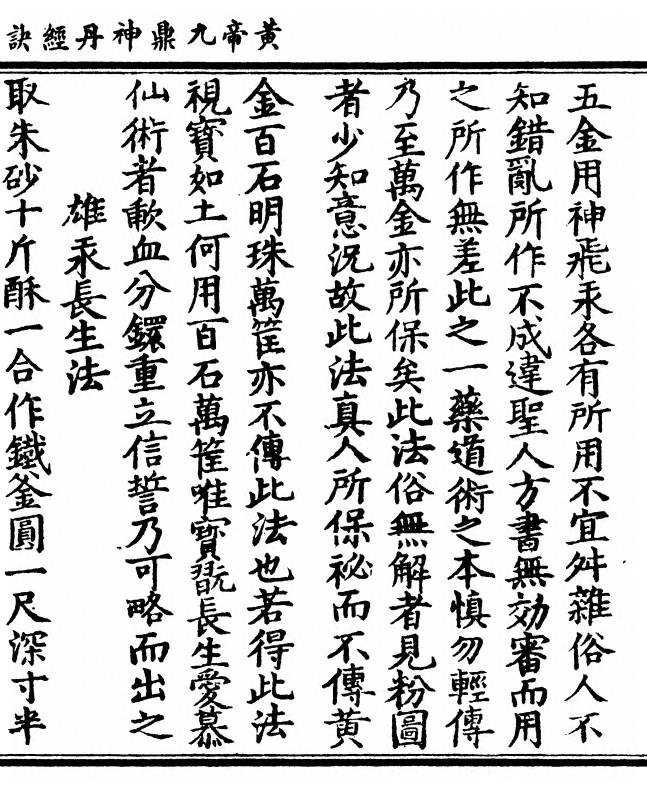 黄帝九鼎神丹經訣
五金用神飛汞各有所用不宜舛雜俗人不
知錯亂所作不成違聖人方書無効審而用
之所作無差此之一藥道術之本慎勿輕傳
乃至萬金亦所保矣此法俗無解者見粉圖
者少知意況故此法真人所保祕而不傳黄
金百石明珠萬筐亦不傳此法也若得此法
視寶如土何用百石萬筐唯寶翫長生愛慕
仙術者歃血分鐶重立信誓乃可略而出之
雄汞長生法
取朱砂十斤酥一合作鐵釜圓一尺深寸半